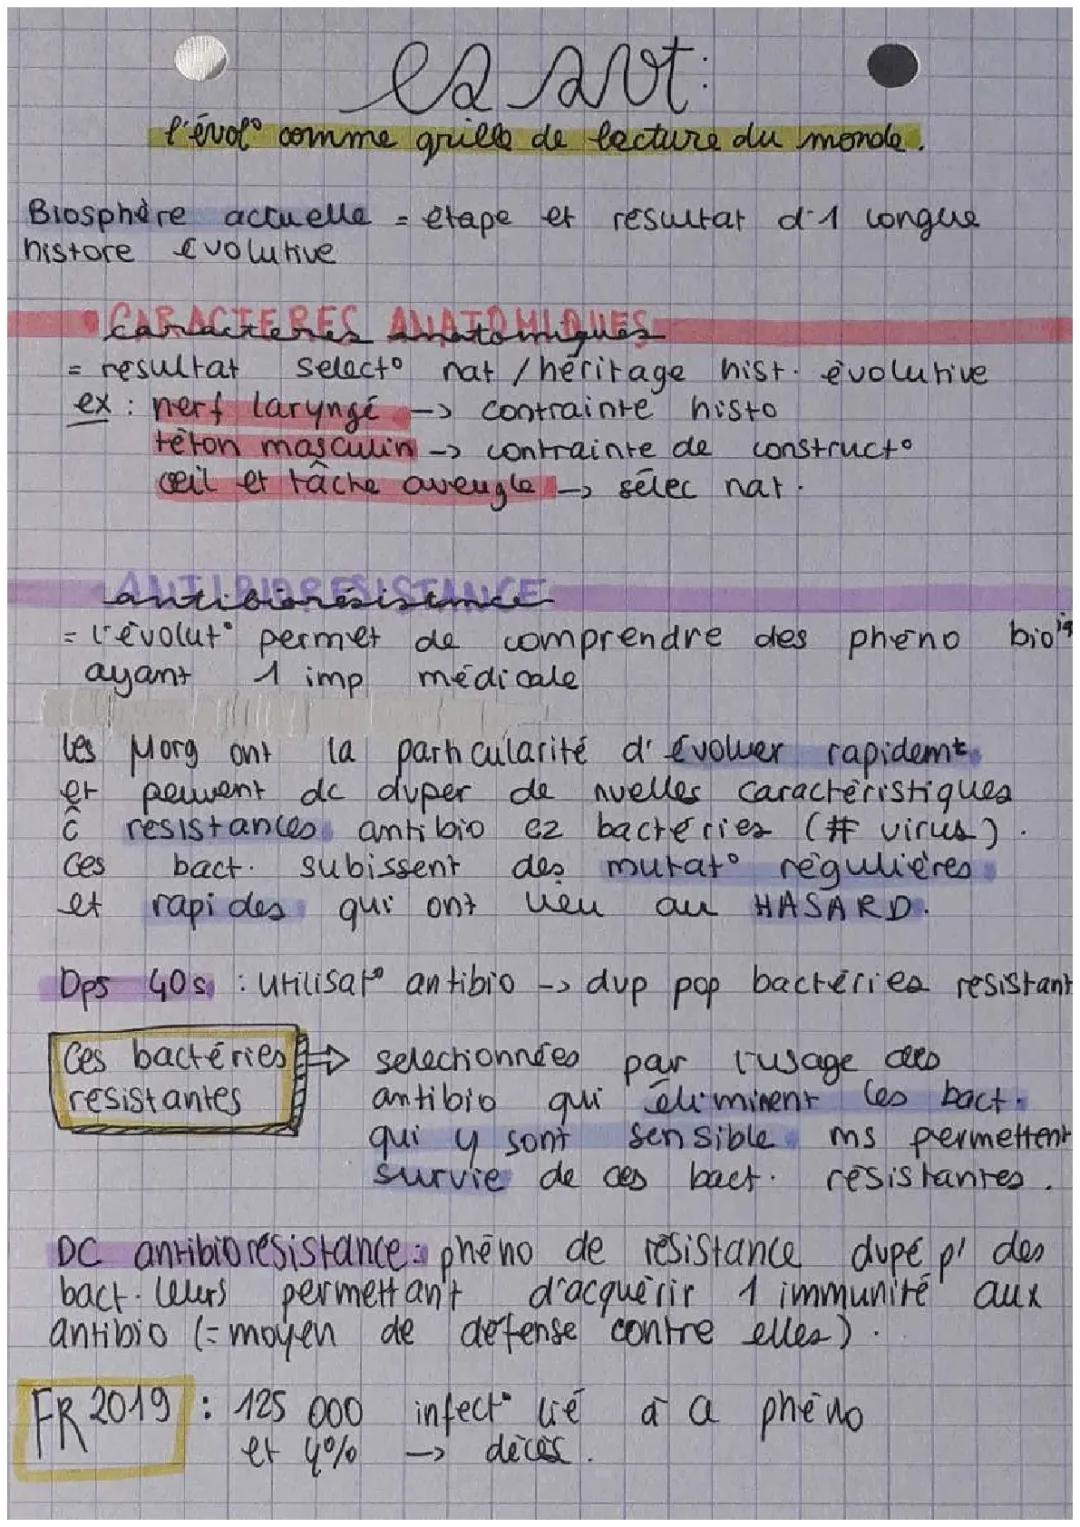 es svt:
l'évol° comme grille de lecture du monde.
Biosphère actuelle = étape et résultat d'1 longue
histore évolutive
• CARACTERES ANATOMIQUES
caractères anatomiques
= resultat select° nat / héritage hist. évolutive
ex : nerf laryngé -> contrainte histo
têton masculin -> contrainte de construct°
œil et tâche aveugle -> sélec nat.
ANTIBIORESISTANCE
antibiorésistance
= l'évolut° permet de comprendre des phéno bioiq
ayant 1 imp médicale
Les Morg ont la particularité d'évoluer rapidemt
et peuvent dc dvper de nvelles caractéristiques
c̃ résistances antibio ez bactéries (# virus).
Ces bact. subissent des mutat° régulières
et rapides qui ont lieu au HASARD.
Dps 40s : utilisat° antibio -> dvp pop bactéries resistant
Ces bactéries => selectionnées par l'usage des
resistantes antibio qui éliminent les bact.
qui y sont sensible ms permettent
survie de ces bact. résistantes.
DC antibiorésistance : phéno de résistance dvpé p' des
bact. leurs permettant d'acquérir 1 immunité aux
antibio (= moyen de défense contre elles).
FR 2019 : 125 000 infect° lié à ce phéno
et 4% -> décès.